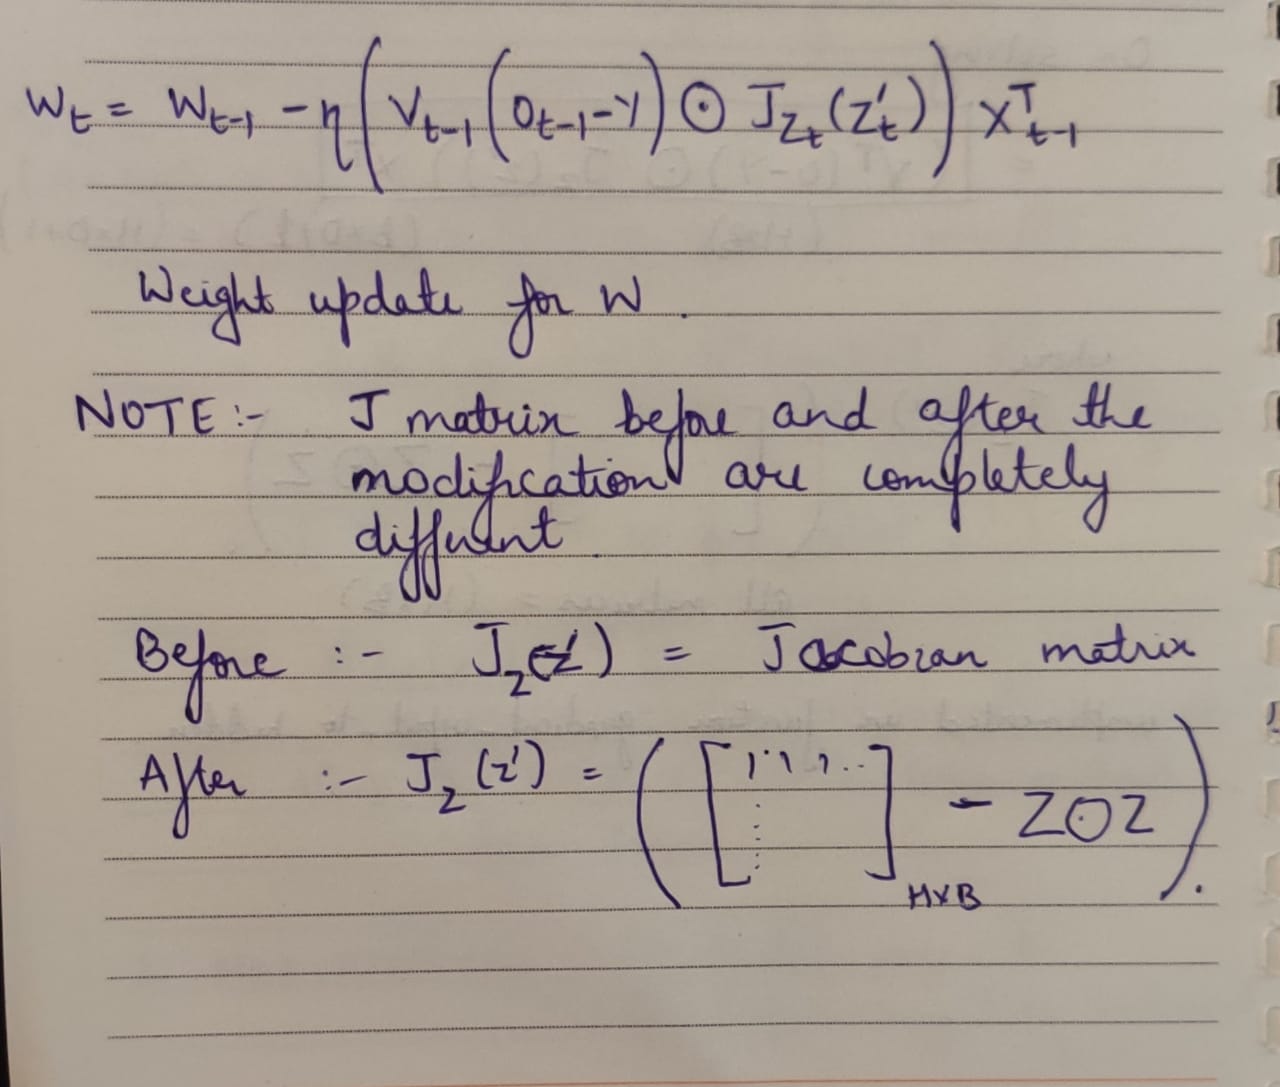 W_t = W_{t-1} - η(V_{t-1}(O_{t-1} - Y) ⊙ J_{Z_t}(Z'_t)) X^T_{t-1}
Weight update for W.
NOTE:- J matrix before and after the
modification are completely
different.
Before :- J_Z(Z') = Jacobian matrix
After :- J_Z(Z') = ([1 1 1 1 .. ⋮]_{H×B} - Z⊙Z).